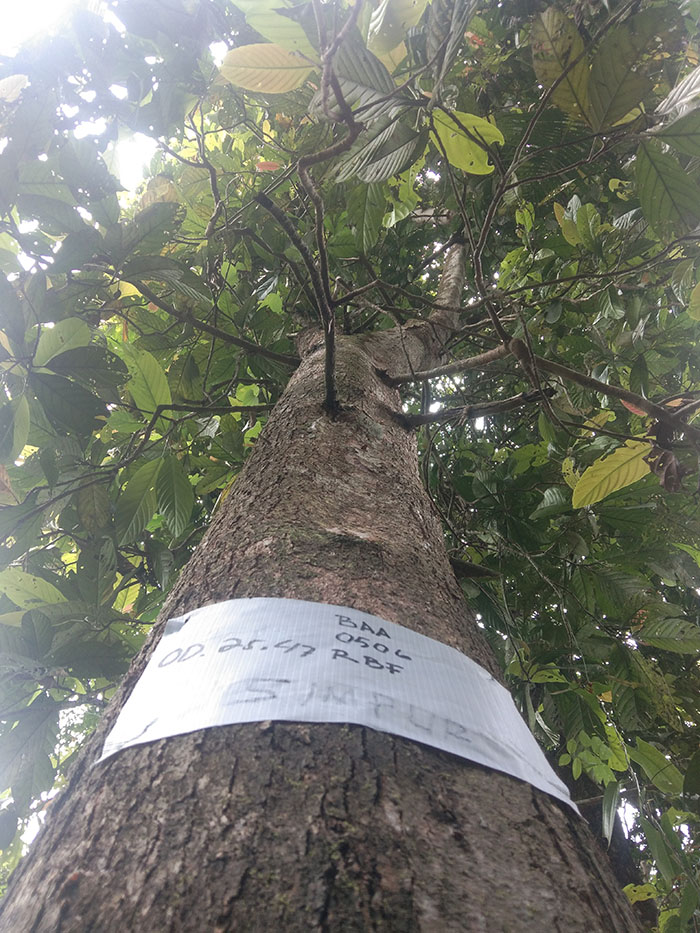 BAA
0506
OD. 25.47 RBF
SIMPUR